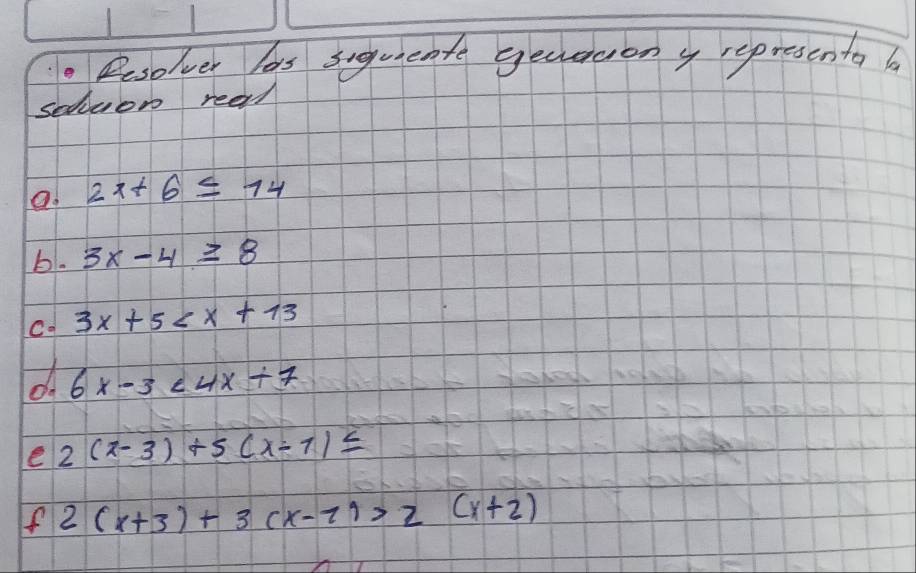 • Resolver las siguiente ecuacion y representa la
solucion real
a. 2x + 6 ≤ 14
b. 3x - 4 ≥ 8
c. 3x + 5 < x + 13
d. 6x - 3 < 4x + 7
e 2 (x - 3) + 5 (x - 1) ≤
f 2 (x + 3) + 3 (x - 1) > 2 (x + 2)